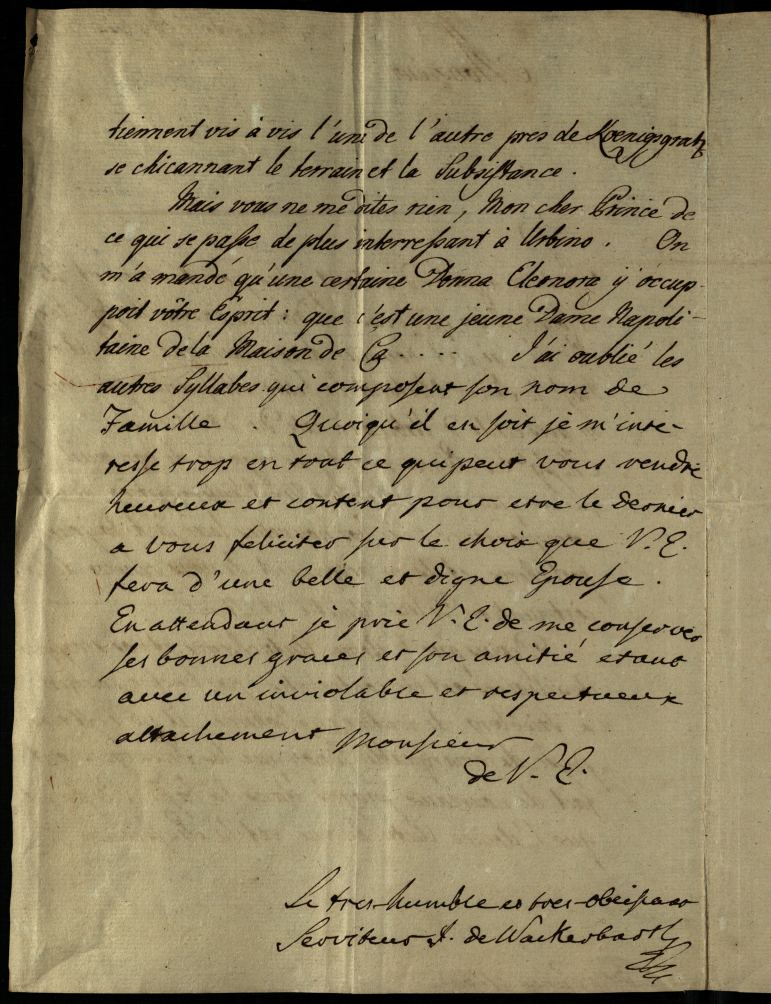 tiennent vis à vis l'une de l'autre pres de Koenigsgratz
se chicannant le terrain et la Subsistance.
Mais vous ne me dites rien, Mon cher Prince de
ce qui se passe de plus interressant à Urbino. On
m'a mandé qu'une certaine Donna Eleonora ÿ occup-
poit vôtre Esprit: que c'est une jeune Dame Napoli-
taine de la Maison de Ca..... J'ai oublié les
autres Syllabes qui composent son nom de
Famille. Quoiqu'il en soit je m'inte-
resse trop en tout ce qui peut vous rendre
heureux et content pour etre le dernier
a vous feliciter sur le choix que V. E.
fera d'une belle et digne Epouse.
En attendant je prie V. E. de me conserver
ses bonnes graces et son amitié, etant
avec un inviolable et respectueux
attachement Monsieur
de V. E.
Le tres-humble et tres-obeissant
Serviteur J. de Wackerbarth